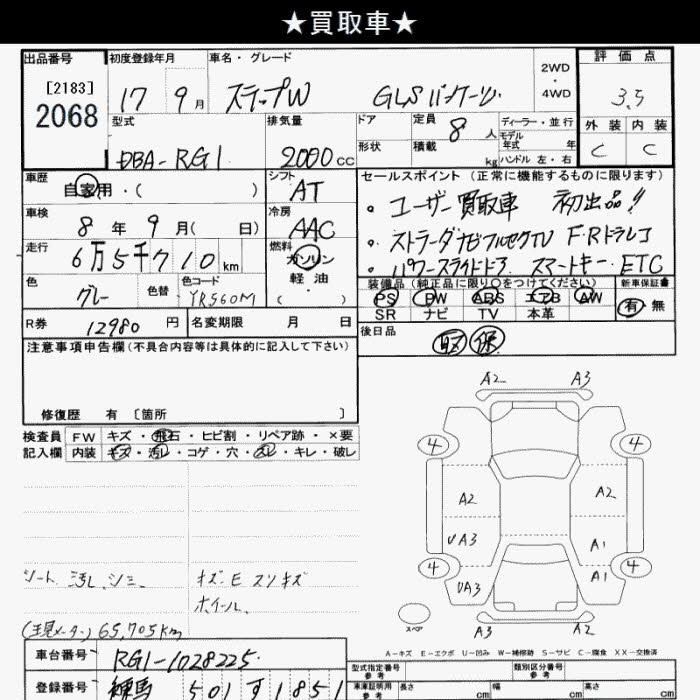 ★買取車★
出品番号
[2183]
2068
初度登録年月
17 9月
車名・グレード
ステップW GLSパッケージ
2WD
・
4WD
評価点
3.5
外装 内装
C C
型式
DBA-RG1
排気量
2000cc
ドア
形状
定員 8人
積載 kg
ディーラー・並行
モデル
年式 年
ハンドル 左・右
車歴
自家用・( )
シフト
AT
車検
8年 9月( 日)
冷房
AAC
走行
6万5千710km
燃料
ガソリン
軽油
( )
色
グレー
色替
色コード
YR560M
セールスポイント(正常に機能するものに限ります)
。ユーザー買取車 初出品!!
。ストラーダナビフルセグTV F・Rドラレコ
。パワースライドドア スマートキー ETC
装備品(純正品に限り○をつけてください)
PS PW ABS エアB AW
SR ナビ TV 本革
新車保証書
有・無
R券 12980円
名変期限 月 日
後日品
取 保
注意事項申告欄(不具合内容等は具体的に記入して下さい)
修復歴 有 [箇所 ]
検査員
記入欄
FW キズ・飛石・ヒビ割・リペア跡・×要
内装 キズ・汚レ・コゲ・穴・スレ・キレ・破レ
シート 汚レ シミ
キズ E スリキズ
ホイール
65,705km
A2 A3
4 4
A2 A2
UA3 A1
4 4
UA3 A1
スペア
A3 A2
A-キズ E-エクボ U-凹み W-補修跡 S-サビ C-腐食 XX-交換済
車台番号 RG1-1028225
登録番号 練馬 501 す 1851
型式指定番号
参考
類別区分番号
参考
車庫証明用
参考
長さ cm
幅 cm
高さ cm